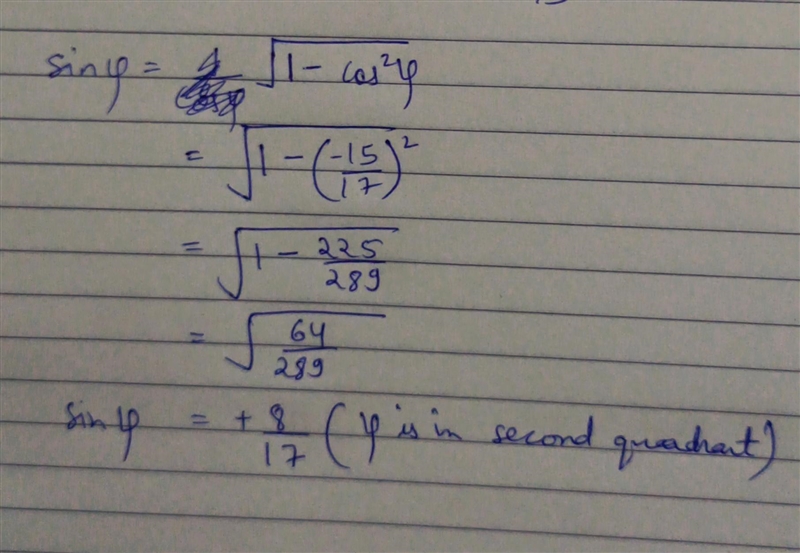 sinψ = √(1 - cos²ψ)
= √(1 - (-15/17)²)
= √(1 - 225/289)
= √(64/289)
sinψ = + 8/17 (ψ is in second quadrant)